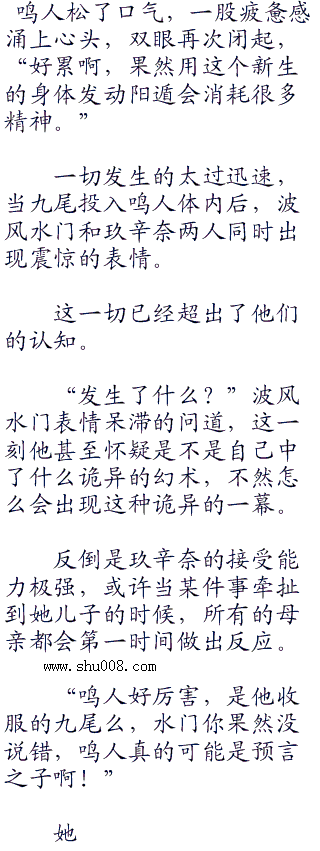 鸣人松了口气，一股疲惫感
涌上心头，双眼再次闭起，
“好累啊，果然用这个新生
的身体发动阳遁会消耗很多
精神。”
一切发生的太过迅速，
当九尾投入鸣人体内后，波
风水门和玖辛奈两人同时出
现震惊的表情。
这一切已经超出了他们
的认知。
“发生了什么？”波风
水门表情呆滞的问道，这一
刻他甚至怀疑是不是自己中
了什么诡异的幻术，不然怎
么会出现这种诡异的一幕。
反倒是玖辛奈的接受能
力极强，或许当某件事牵扯
到她儿子的时候，所有的母
亲都会第一时间做出反应。
www.shu008.com
“鸣人好厉害，是他收
服的九尾么，水门你果然没
说错，鸣人真的可能是预言
之子啊！”
她